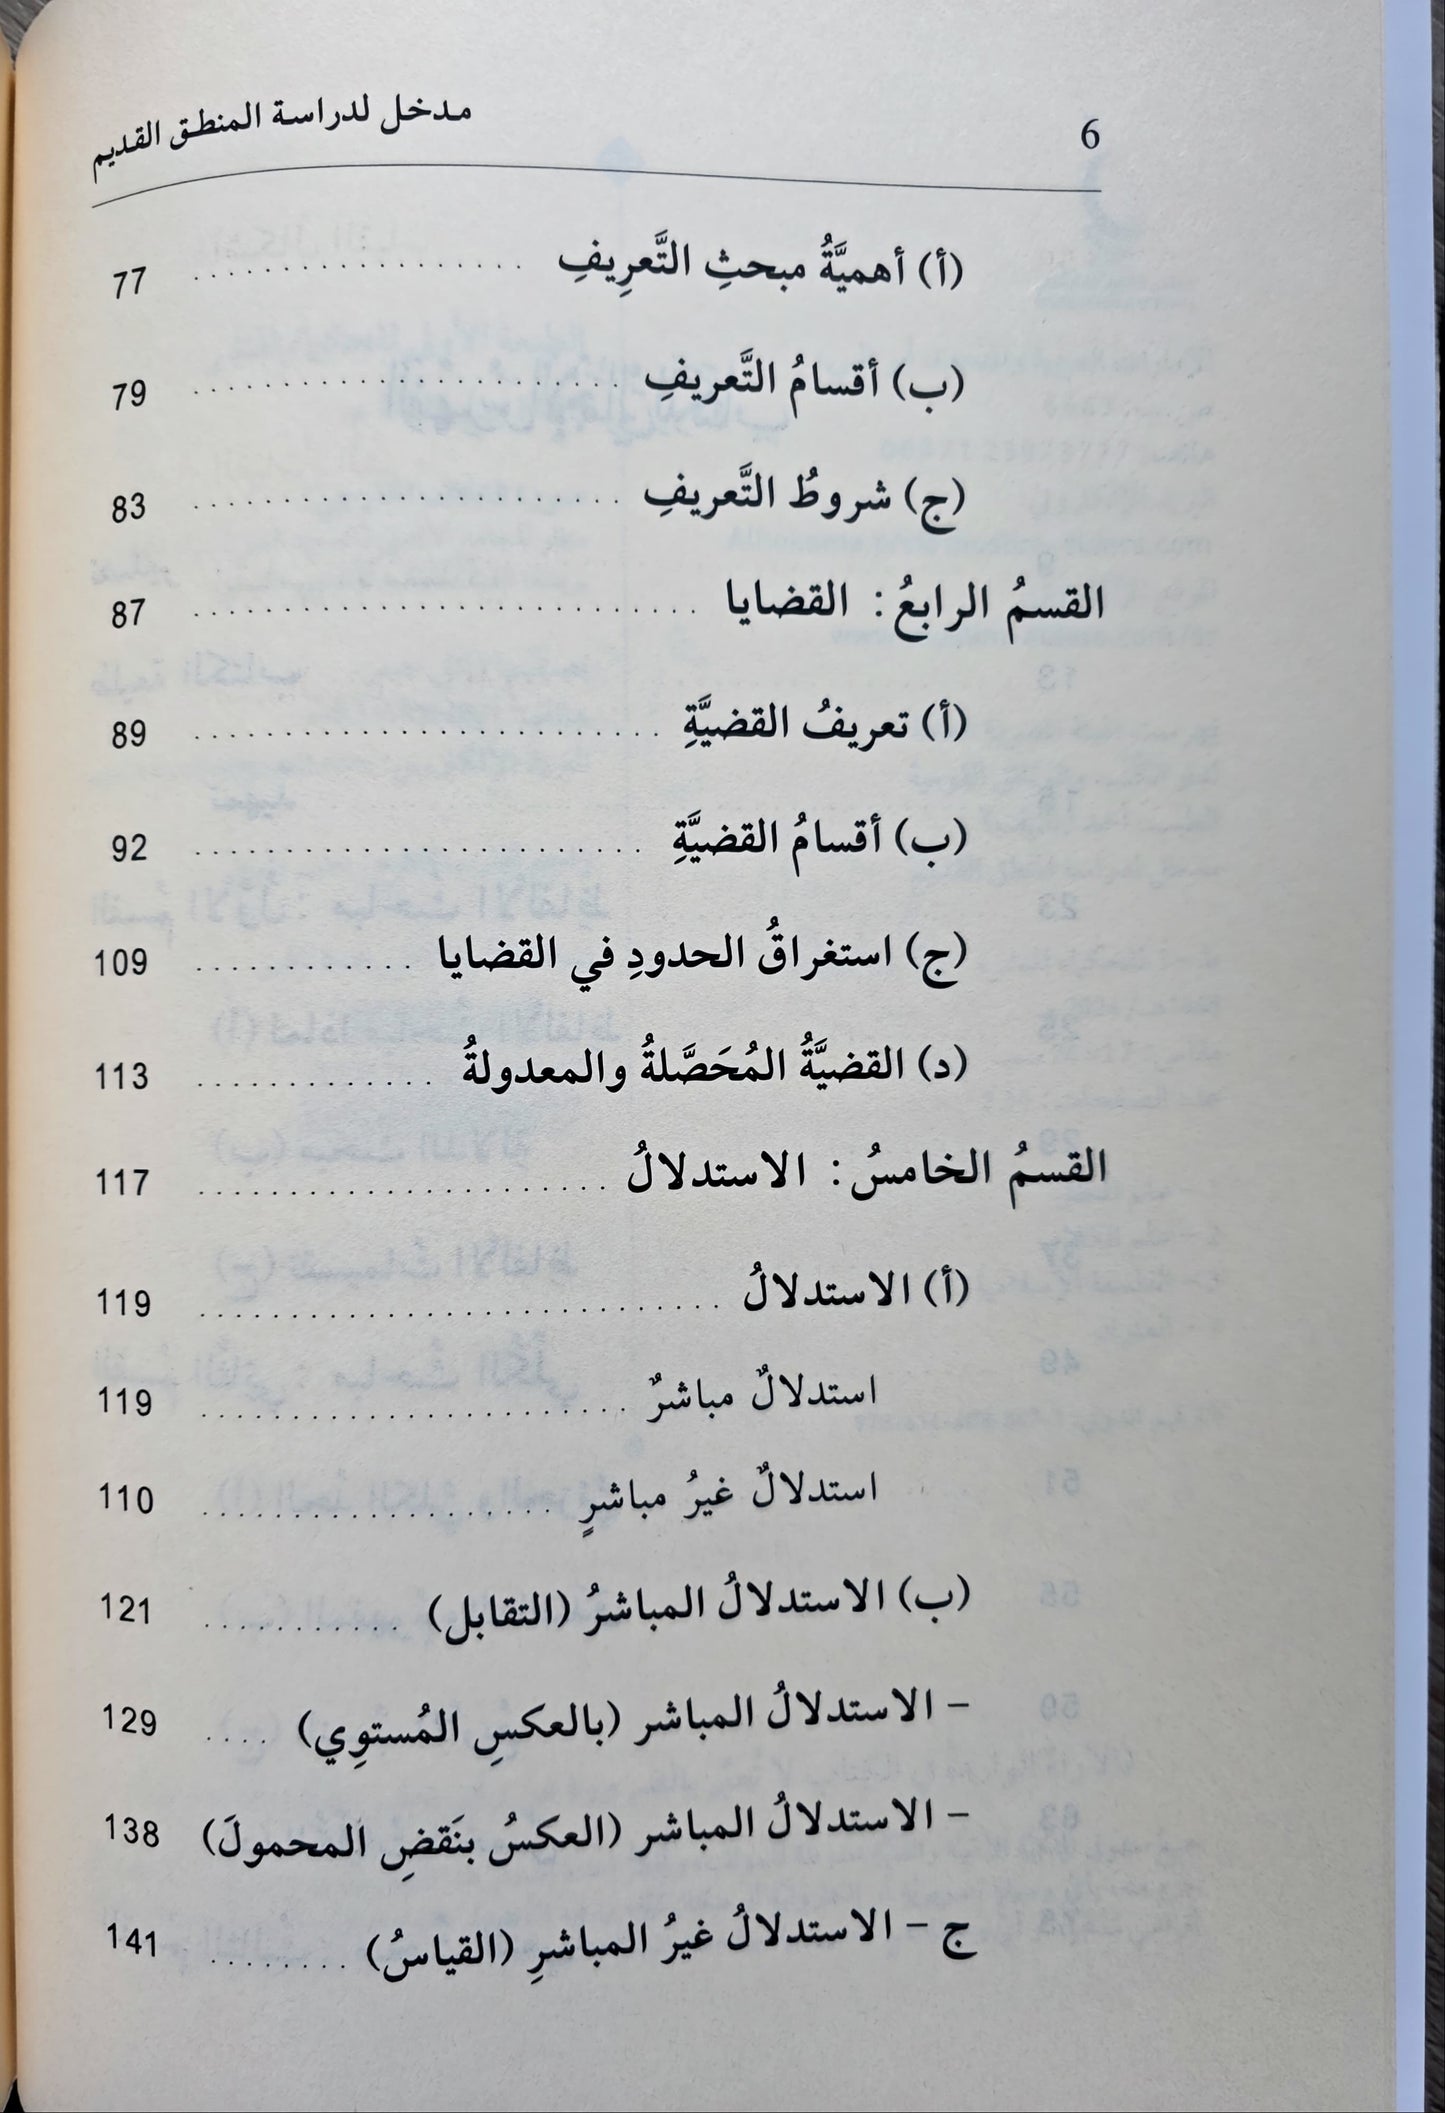 6
مدخل لدراسة المنطق القديم
(أ) أهميَّةُ مبحثِ التَّعرِيفِ .................. 77
(ب) أقسامُ التَّعريفِ ........................ 79
(ج) شروطُ التَّعريفِ ........................ 83
القسمُ الرابعُ: القضايا ............................ 87
(أ) تعريفُ القضيَّةِ .......................... 89
(ب) أقسامُ القضيَّةِ ......................... 92
(ج) استغراقُ الحدودِ في القضايا ............ 109
(د) القضيَّةُ المُحَصَّلةُ والمعدولةُ ............. 113
القسمُ الخامسُ: الاستدلالُ ....................... 117
(أ) الاستدلالُ ............................. 119
استدلالٌ مباشرٌ ........................ 119
استدلالٌ غيرُ مباشرٍ .................... 110
(ب) الاستدلالُ المباشرُ (التقابل) ........... 121
- الاستدلالُ المباشر (بالعكسِ المُستوِي) .... 129
- الاستدلالُ المباشر (العكسُ بنَقضِ المحمولَ) 138
ج - الاستدلالُ غيرُ المباشرِ (القياسُ) ........ 141